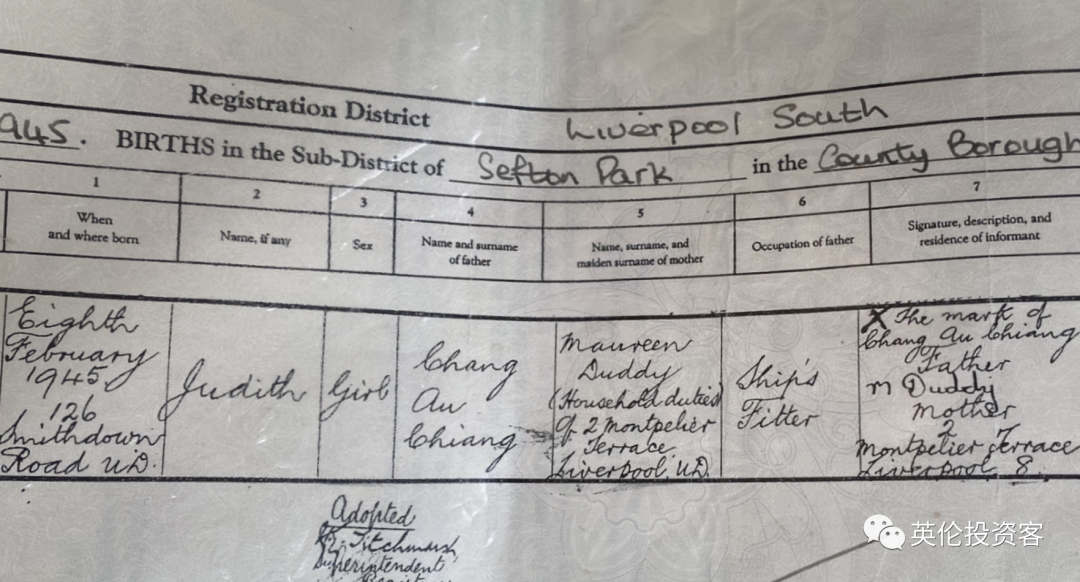 Registration District Liverpool South
945. BIRTHS in the Sub-District of Sefton Park in the County Borough
1 2 3 4 5 6 7
When and where born
Name, if any
Sex
Name and surname of father
Name, surname, and maiden surname of mother
Occupation of father
Signature, description, and residence of informant
Eighth
February
1945
126
Smithdown
Road U.D.
Judith
Girl
Chang
Au
Chiang
Maureen
Duddy
(Household duties)
of 2 Montpelier
Terrace
Liverpool. U.D.
Ship's
Fitter
X The mark of
Chang Au Chiang
Father
M Duddy
Mother
2
Montpelier Terrace
Liverpool 8.
Adopted
Titchmarsh
Superintendent
英伦投资客